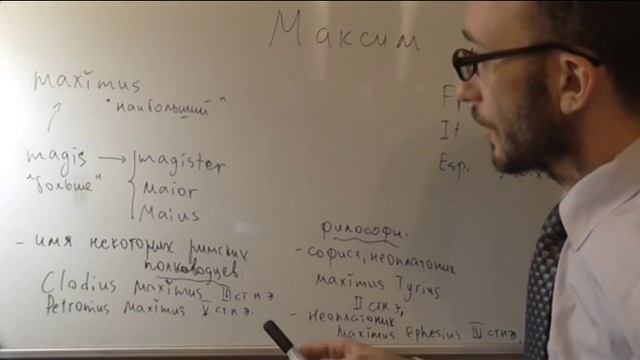 Максим
maxĭmus
"наибольший"
magis → magister
"больше"
Maior
Maius
- имя некоторых римских
полководцев
Clodius Maxĭmus III ст н.э
Petronius Maxĭmus V ст н.э.
It.
Esp.
философы:
- софист, неоплатоник
Maxĭmus Tyrius
II ст н.э,
- неоплатоник
Maxĭmus Ephesius IV ст н.э.